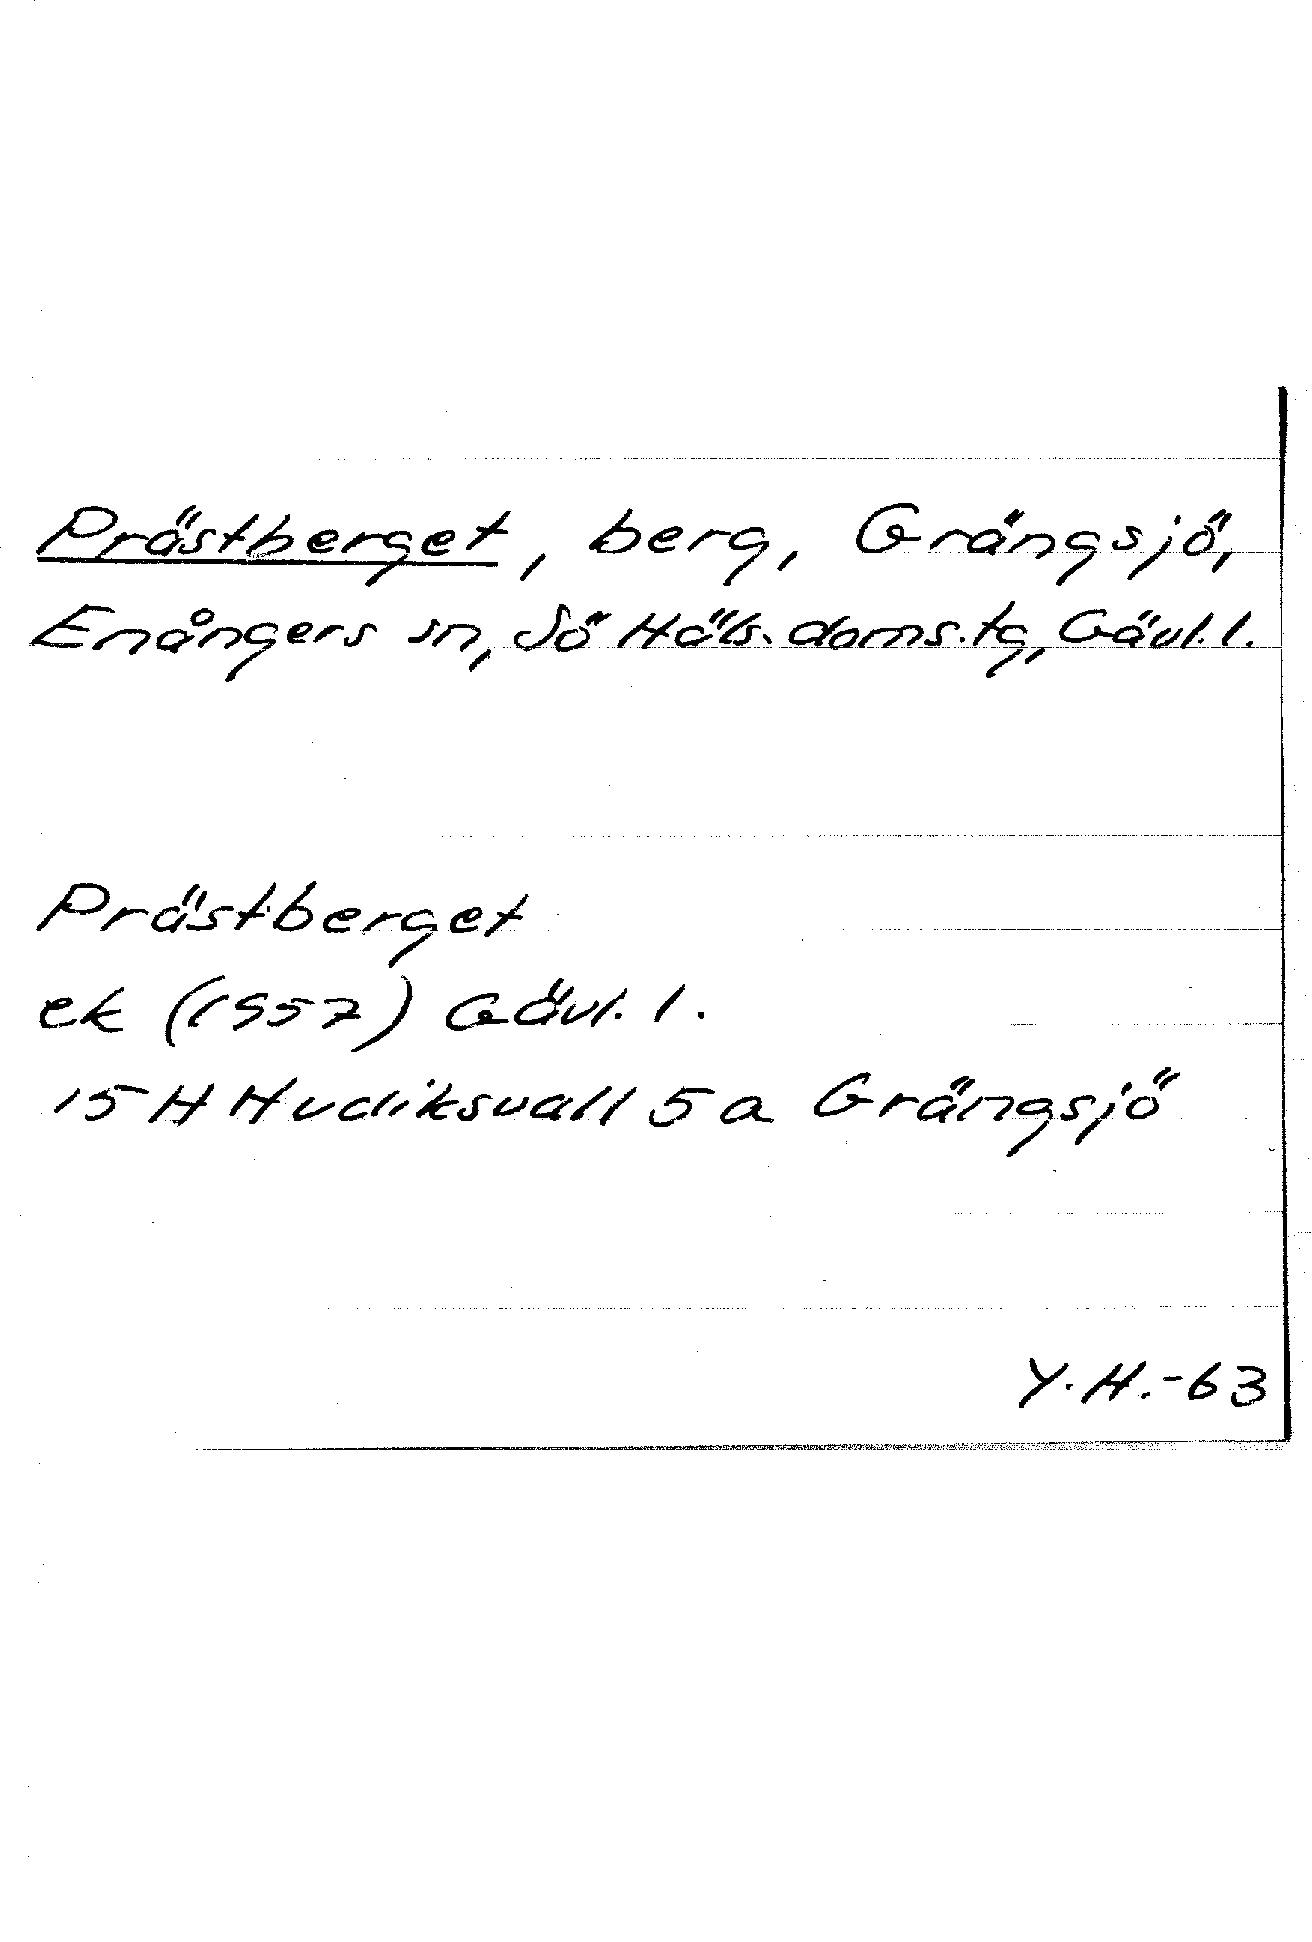 Prästberget, berg, Grängsjö,
Enångers sn, Sö Häls. doms.tg, Gävl. l.
Prästberget
ek (1957) Gävl. l.
15 H Hudiksvall 5 a Grängsjö
Y. H. -63